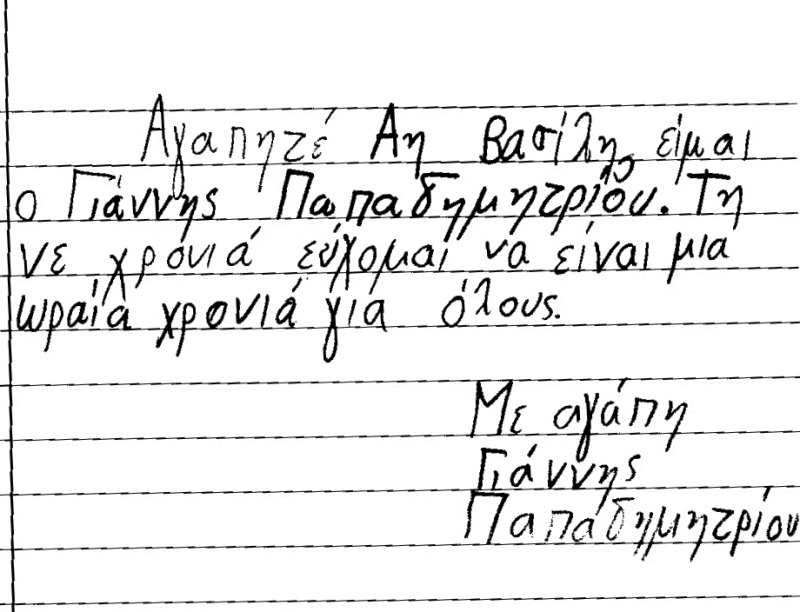 Αγαπητέ Αη Βασίλη, είμαι
ο Γιάννης Παπαδημητρίου. Τη
νε χρονιά εύχομαι να είναι μια
ωραία χρονιά για όλους.
Με αγάπη
Γιάννης
Παπαδημητρίου